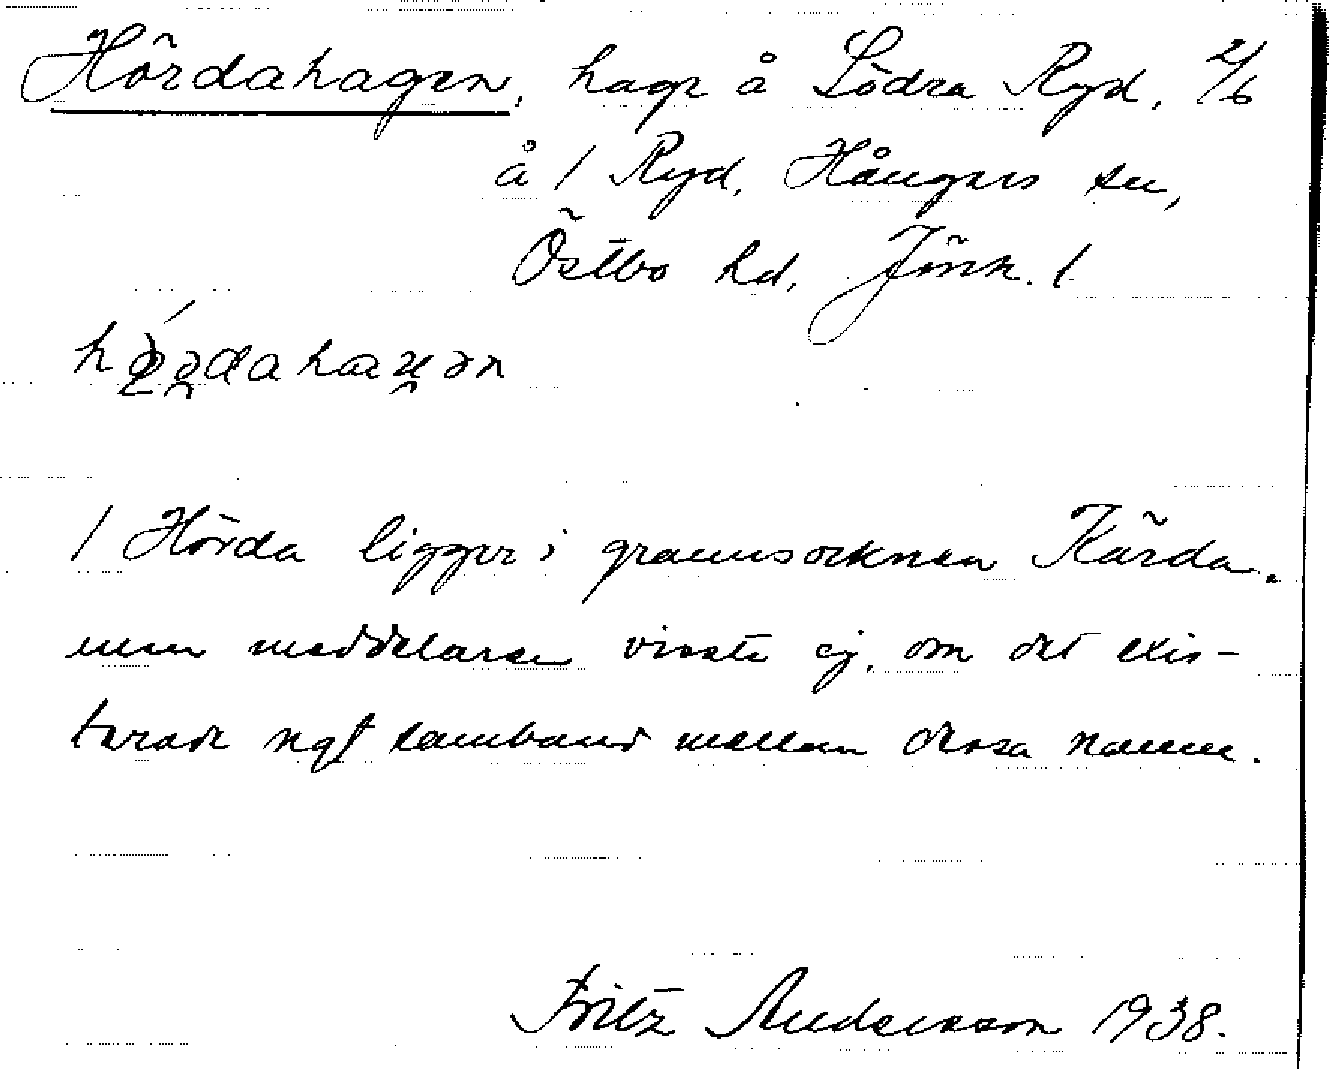 Hördahagen, hage å Södra Ryd, 2/6
å 1 Ryd, Hångers sn,
Östbo hd, Jönk. l
1 Hörda ligger i grannsocknen Kärda.
men meddelaren visste ej, om det exis-
terade ngt samband mellan dessa namn.
Fritz Andersson 1938.